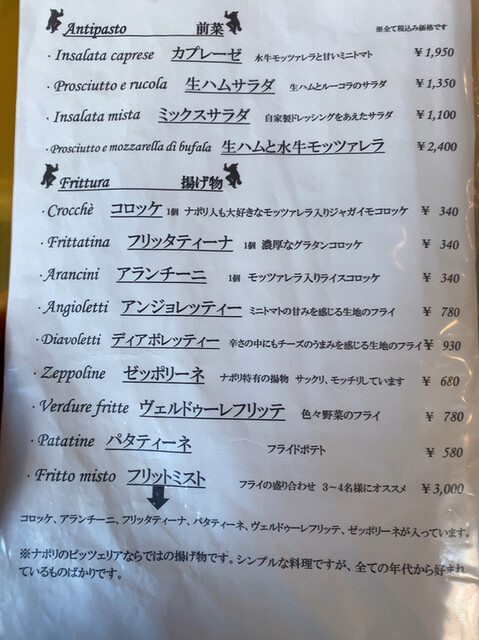 Antipasto 前菜 ※全て税込み価格です
・Insalata caprese カプレーゼ 水牛モッツァレラと甘いミニトマト ￥1,950
・Prosciutto e rucola 生ハムサラダ 生ハムとルーコラのサラダ ￥1,350
・Insalata mista ミックスサラダ 自家製ドレッシングをあえたサラダ ￥1,100
・Prosciutto e mozzarella di bufala 生ハムと水牛モッツァレラ ￥2,400
Frittura 揚げ物
・Crocchè コロッケ 1個 ナポリ人も大好きなモッツァレラ入りジャガイモコロッケ ￥ 340
・Frittatina フリッタティーナ 1個 濃厚なグラタンコロッケ ￥ 340
・Arancini アランチーニ 1個 モッツァレラ入りライスコロッケ ￥ 340
・Angioletti アンジョレッティー ミニトマトの甘みを感じる生地のフライ ￥ 780
・Diavoletti ディアボレッティー 辛さの中にもチーズのうまみを感じる生地のフライ ￥ 930
・Zeppoline ゼッポリーネ ナポリ特有の揚物 サックリ、モッチリしています ￥ 680
・Verdure fritte ヴェルドゥーレフリッテ 色々野菜のフライ ￥ 780
・Patatine パタティーネ フライドポテト ￥ 580
・Fritto misto フリットミスト フライの盛り合わせ 3～4名様にオススメ ￥3,000
コロッケ、アランチーニ、フリッタティーナ、パタティーネ、ヴェルドゥーレフリッテ、ゼッポリーネが入っています。
※ナポリのピッツェリアならではの揚げ物です。シンプルな料理ですが、全ての年代から好まれ
ているものばかりです。